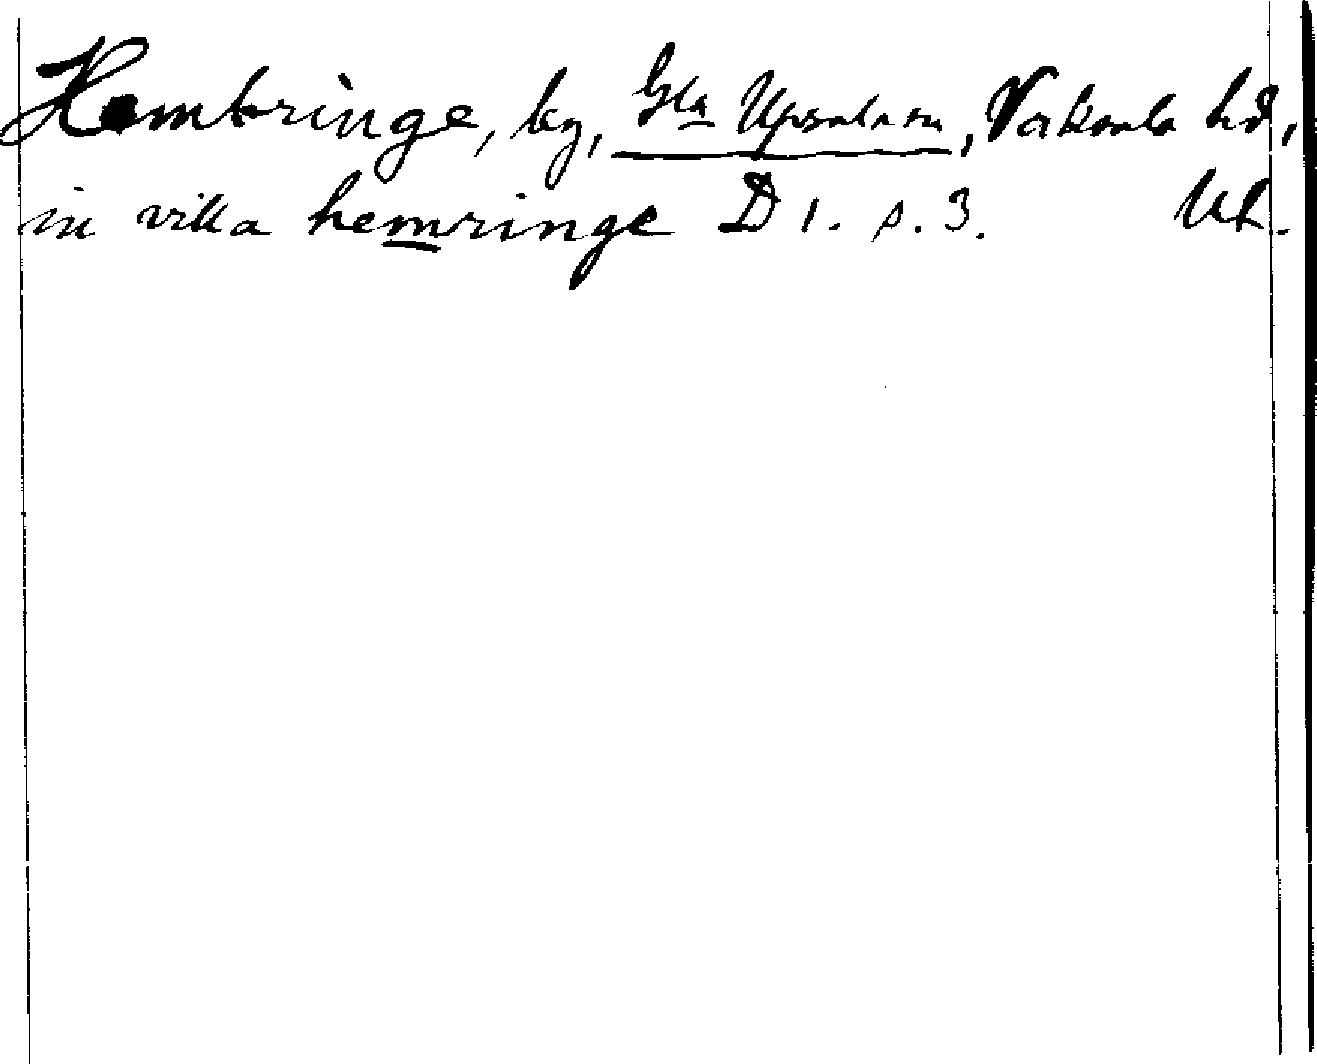 Hembringe, by, Gla Upsala sn, Vaksala hd,
in villa hemringe D 1. s. 3. Upl.